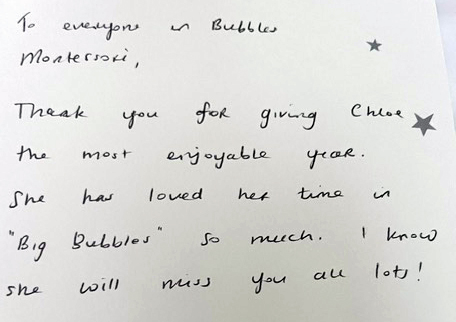 To everyone in Bubbles
Montessori,
Thank you for giving Chloe
the most enjoyable year.
She has loved her time in
"Big Bubbles" so much. I know
she will miss you all lots!